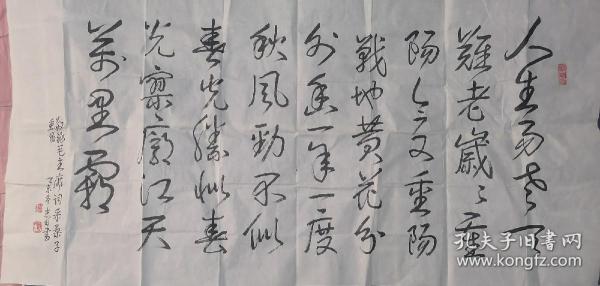 人生易老天
難老歲々重
陽今又重陽
戰地黄花分
外香一年一度
秋風勁不似
春光勝似春
光寥廓江天
萬里霜
毛主席词采桑子
重陽
孔夫子旧书网
www.kongfz.com